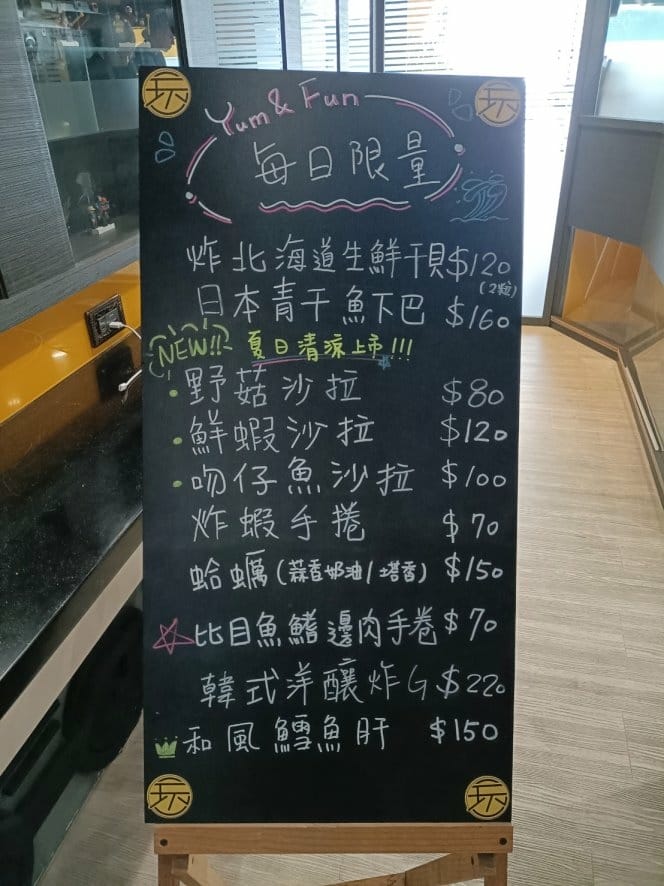 玩 玩
Yum & Fun
每日限量
炸北海道生鮮干貝$120
(2粒)
日本青干魚下巴 $160
NEW!! 夏日清涼上市!!!
•野菇沙拉 $80
•鮮蝦沙拉 $120
•吻仔魚沙拉 $100
炸蝦手捲 $70
蛤蠣(蒜香奶油/塔香) $150
比目魚鰭邊肉手卷 $70
韓式洋釀炸G $220
和風鱈魚肝 $150
玩 玩